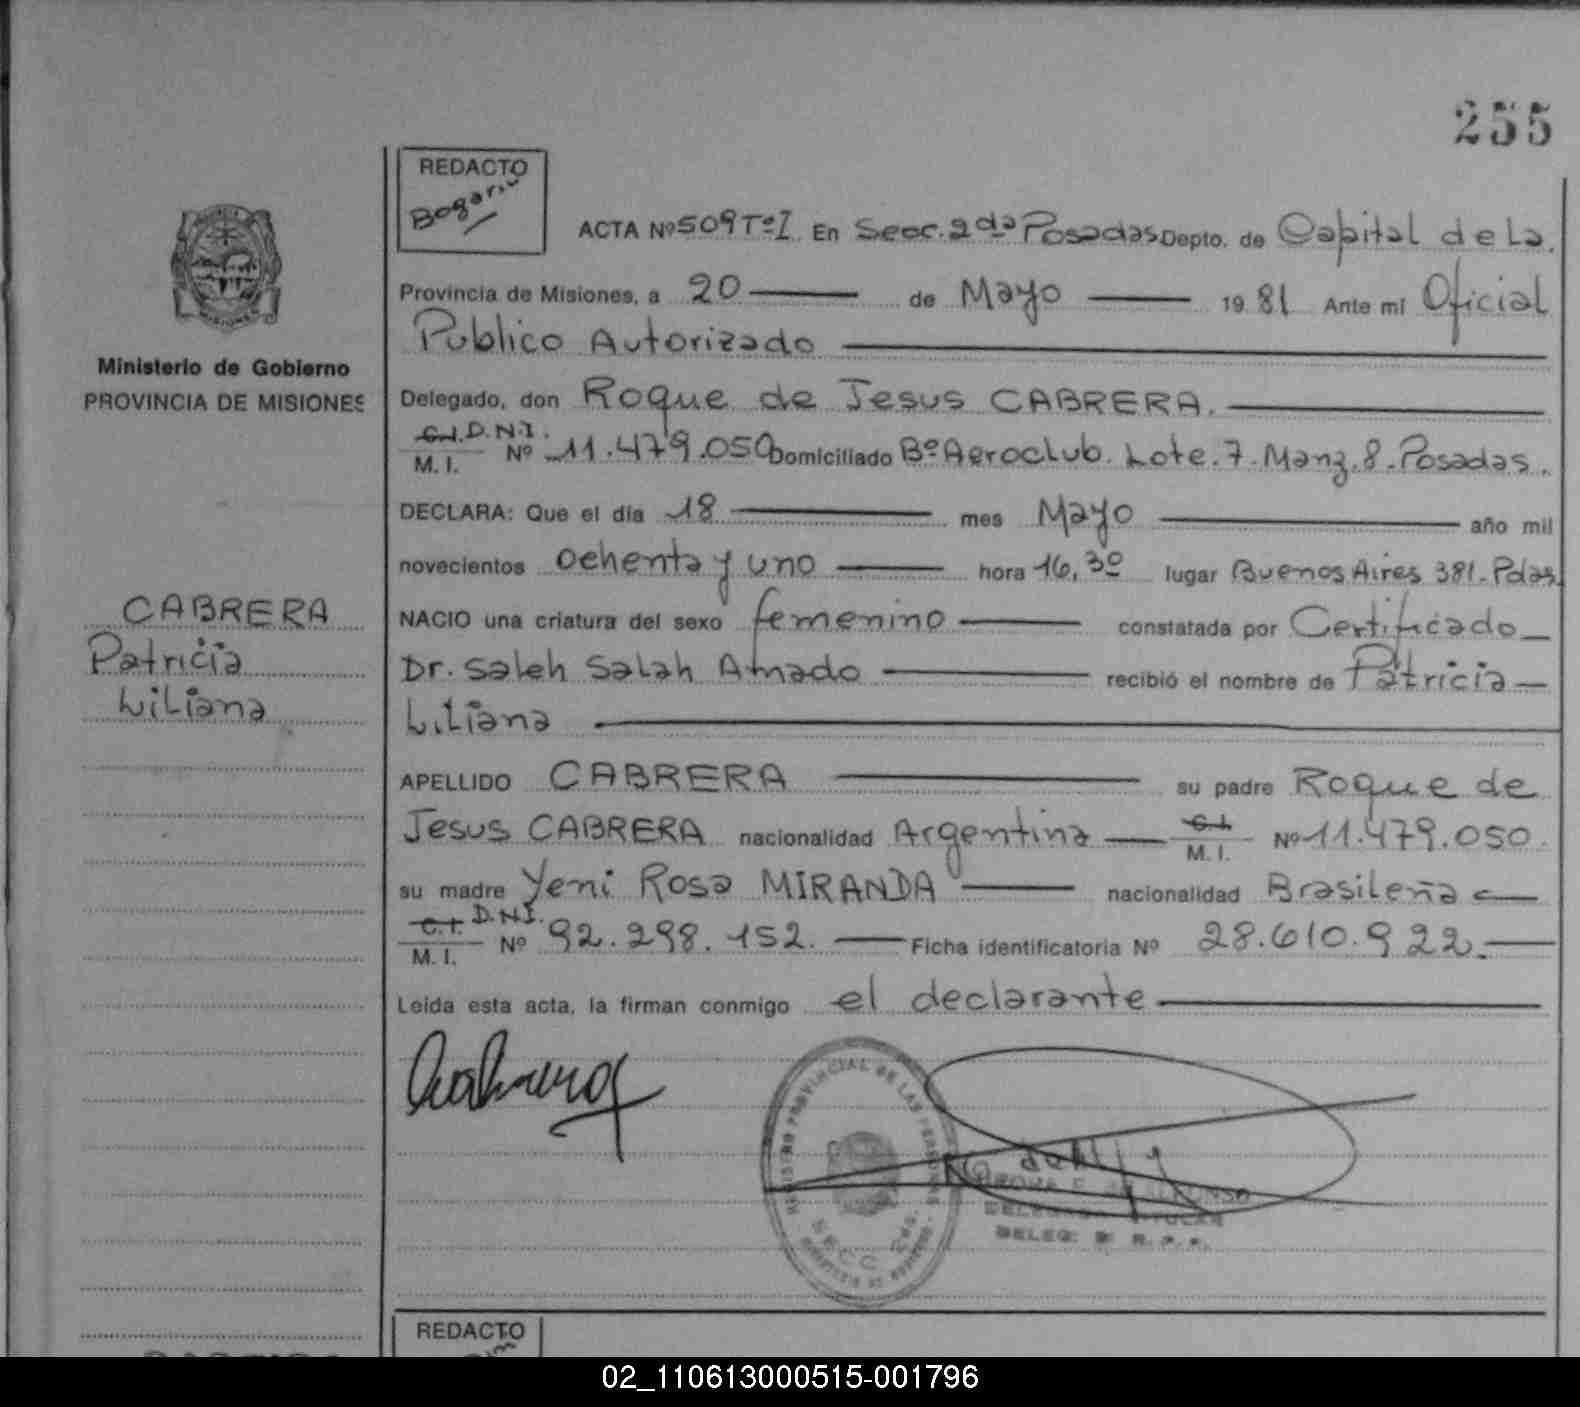 255
REDACTO
Bogarin
ACTA Nº 509 Tº I En Secc. 2da Posadas Depto. de Capital de La
Provincia de Misiones, a 20 de Mayo 1981 Ante mi Oficial
Publico Autorizado
Ministerio de Gobierno
PROVINCIA DE MISIONES
Delegado, don Roque de Jesus CABRERA.
C.I. D.N.I.
M. I. Nº 11.479.050 Domiciliado Bº Aeroclub. Lote. 7. Manz. 8. Posadas.
DECLARA: Que el día 18 mes Mayo año mil
novecientos ochenta y uno hora 16,30 lugar Buenos Aires 381. Pdas.
NACIO una criatura del sexo femenino constatada por Certificado
Dr. Saleh Salah Amado recibió el nombre de Patricia
Liliana
CABRERA
Patricia
Liliana
APELLIDO CABRERA su padre Roque de
Jesus CABRERA nacionalidad Argentina C.I. M. I. Nº 11.479.050.
su madre Yeni Rosa MIRANDA nacionalidad Brasileña
C.I. D.N.I.
M. I. Nº 92.298.152. Ficha identificatoria Nº 28.610.922.
Leida esta acta, la firman conmigo el declarante
REGISTRO PROVINCIAL DE LAS PERSONAS
SECC 2da.
MINISTERIO DE GOBIERNO
TITULAR
DELEG. R. P. P.
REDACTO
02_110613000515-001796